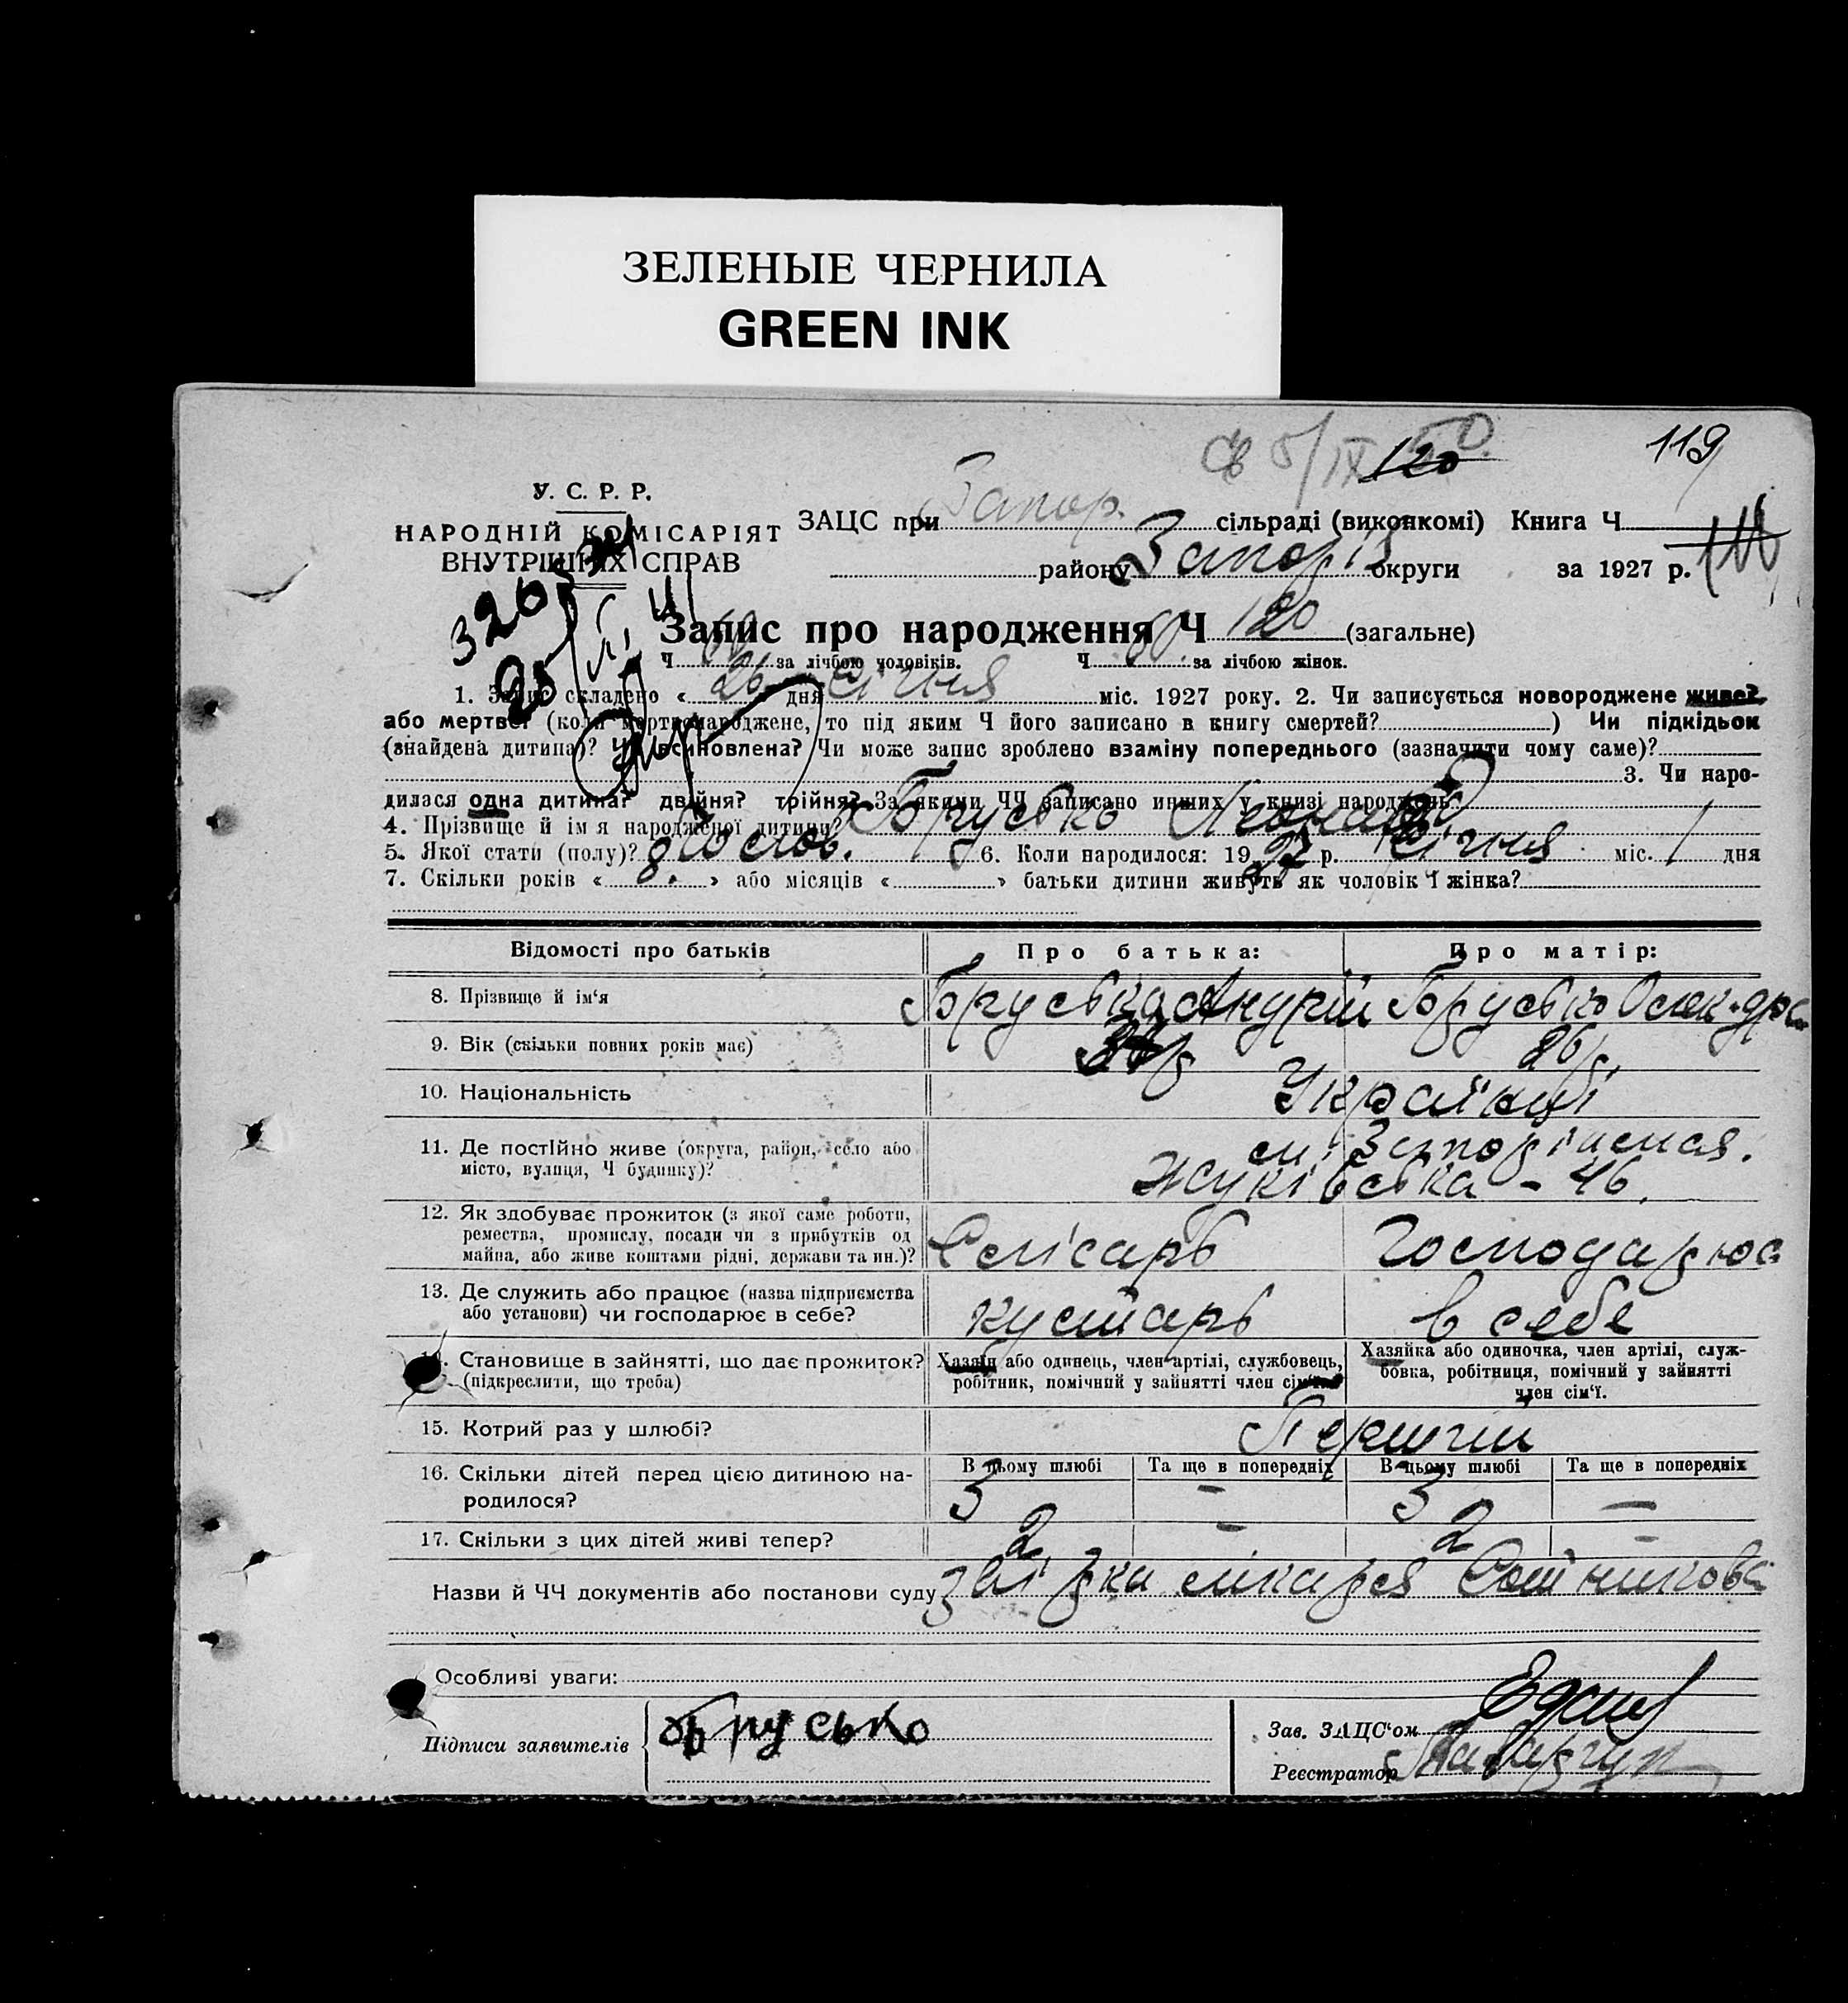 ЗЕЛЕНЫЕ ЧЕРНИЛА
GREEN INK
119
120
У. С. Р. Р.
НАРОДНІЙ КОМІСАРІЯТ
ВНУТРІШНІХ СПРАВ
ЗАЦС при Запор. сільраді (виконкомі) Книга Ч
району Запоріз округи за 1927 р.
Запис про народження Ч 120 (загальне)
Ч за лічбою чоловіків. Ч 60 за лічбою жінок.
1. Запис складено « 26 дня січня міс. 1927 року. 2. Чи записується новороджене живе?
або мертве? (коли мертвонароджене, то під яким Ч його записано в книгу смертей? ) Чи підкідьок
(знайдена дитина)? Чи всиновлена? Чи може запис зроблено взаміну попереднього (зазначити чому саме)?
3. Чи наро-
дилася одна дитина? двійня? трійня? За якими ЧЧ записано инших у книзі народжень?
4. Прізвище й ім'я народженої дитини? Брусько Леонід
5. Якої стати (полу)? чолов. 6. Коли народилося: 1927 р. січня міс. 1 дня
7. Скільки років « 8 » або місяців « » батьки дитини живуть як чоловік і жінка?
Відомості про батьків Про батька: Про матір:
8. Прізвище й ім'я Брусько Андрій Брусько Олек-дра
9. Вік (скільки повних років має) 26
10. Національність Українці
11. Де постійно живе (округа, район, село або м. Запоріжжя.
місто, вулиця, Ч будинку)? Жуківська - 46.
12. Як здобуває прожиток (з якої саме роботи,
ремества, промислу, посади чи з прибутків од
майна, або живе коштами рідні, держави та ин.)? Слісарь Господарює
13. Де служить або працює (назва підприємства
або установи) чи господарює в себе? кустарь в себе
14. Становище в зайнятті, що дає прожиток?
(підкреслити, що треба)
Хазяїн або одинець, член артілі, службовець,
робітник, помічний у зайнятті член сім'ї.
Хазяйка або одиночка, член артілі, служ-
бовка, робітниця, помічний у зайнятті
член сім'ї.
15. Котрий раз у шлюбі? Перший
16. Скільки дітей перед цією дитиною на-
родилося?
В цьому шлюбі Та ще в попередніх В цьому шлюбі Та ще в попередніх
3 — 3 —
17. Скільки з цих дітей живі тепер? 2 — 2 —
Назви й ЧЧ документів або постанови суду звізка лікаря Сотникова
Особливі уваги:
Підписи заявителів Брусько
Зав. ЗАЦС'ом
Реєстратор